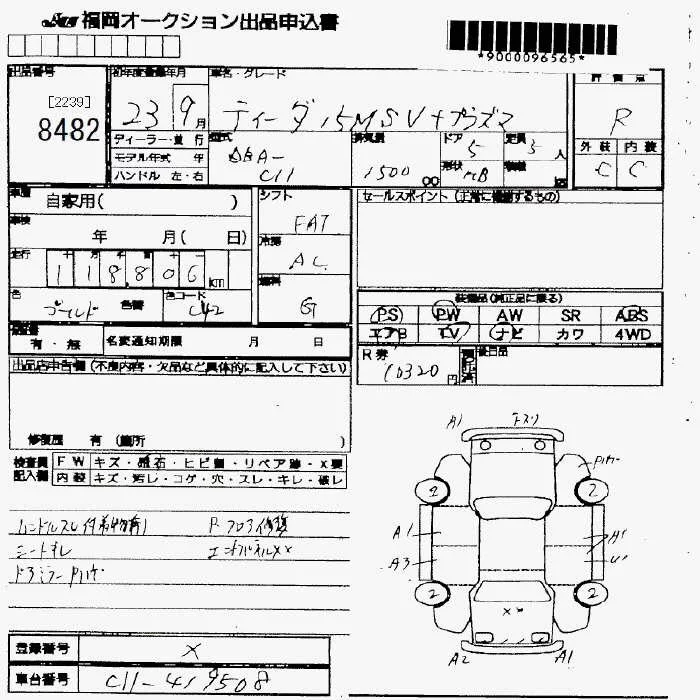 福岡オークション出品申込書
*9000096565*
出品番号
[2239]
8482
初年度登録年月
23 9 月
車名・グレード
ティーダ 15M SV+プラズマ
評価点
R
外装 内装
C C
ディーラー・並行
モデル年式 年
ハンドル 左・右
型式
DBA-
C11
排気量
1500 00
ドア
5
形状
HB
定員
5 人
積載
車歴
自家用( )
車検
年 月( 日)
走行
十 万 千 百 十 一
1 1 8,8 0 6 km
色
ゴールド
色替
色コード
C42
シフト
FAT
冷房
AC
燃料
G
セールスポイント(正常に機能するもの)
装備品(純正品に限る)
PS PW AW SR ABS
エアB TV ナビ カワ 4WD
有・無
名変通知期限 月 日
R券
10320 円
預託済
後日品
出品店申告欄(不良内容・欠品など具体的に記入して下さい)
修復歴 有(箇所 )
検査員
記入欄
FW キズ・飛石・ヒビ割・リペア跡・X要
内装 キズ・汚レ・コゲ・穴・スレ・キレ・破レ
ハンドルスレ
Rフロア修復
シートオレ
エンドパネルXX
ドアミラー
A1
2
2
A1
A3
2
2
A2
A1
登録番号
X
車台番号
C11-419508